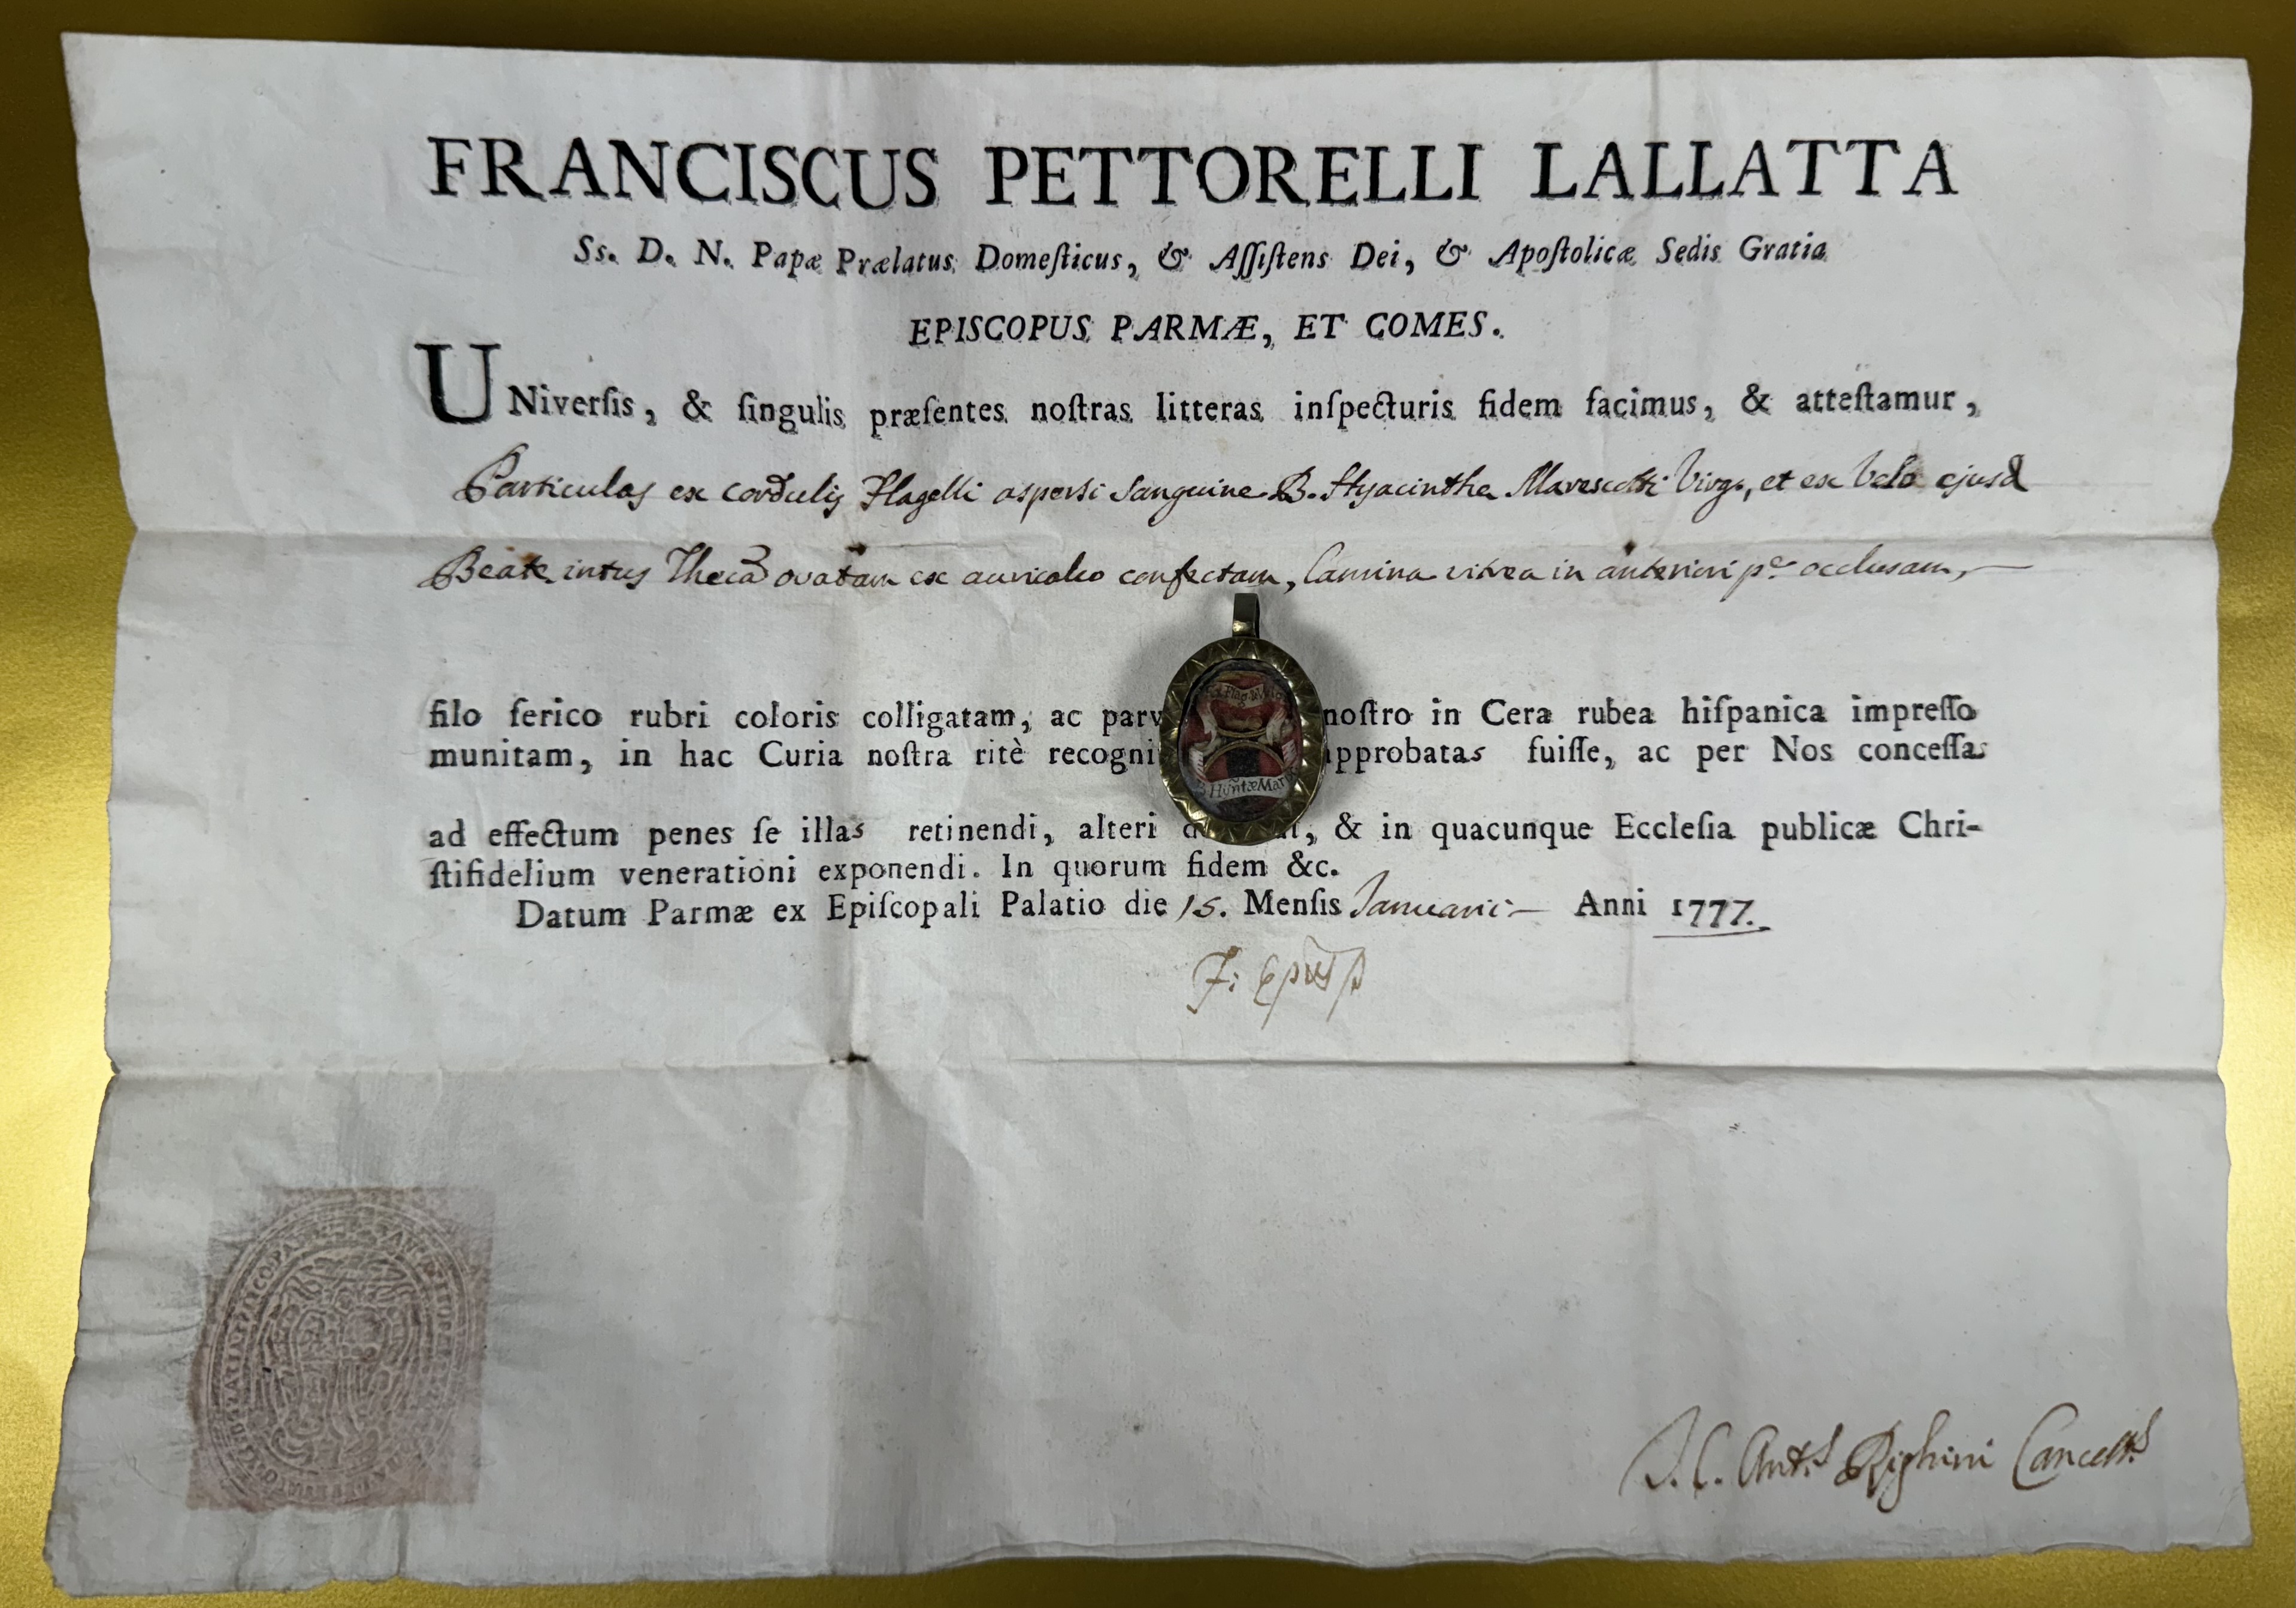 FRANCISCUS PETTORELLI LALLATTA
Ss. D. N. Papæ Prælatus Domeſticus, & Aſſiſtens Dei, & Apoſtolicæ Sedis Gratia
EPISCOPUS PARMÆ, ET COMES.
UNiverſis, & ſingulis præſentes noſtras litteras inſpecturis fidem facimus, & atteſtamur,
Particulas ex cordulis Flagelli aspersi sanguine B. Hyacinthæ Marescotti Virgs, et ex Velo ejusd
Beatæ intus Thecā ovatam ex auricalco confectam, lamina vitrea in anteriori pe occlusam,
filo ſerico rubri coloris colligatam, ac parv noſtro in Cera rubea hiſpanica impreſſo
munitam, in hac Curia noſtra ritè recogni pprobatas fuiſſe, ac per Nos conceſſas
ad effectum penes ſe illas retinendi, alteri & in quacunque Eccleſia publicæ Chri-
ſtifidelium venerationi exponendi. In quorum fidem &c.
Datum Parmæ ex Epiſcopali Palatio die 15. Menſis Januarii Anni 1777.
F: Epus
Antˢ Righini Cancellˢ
HyntæMar